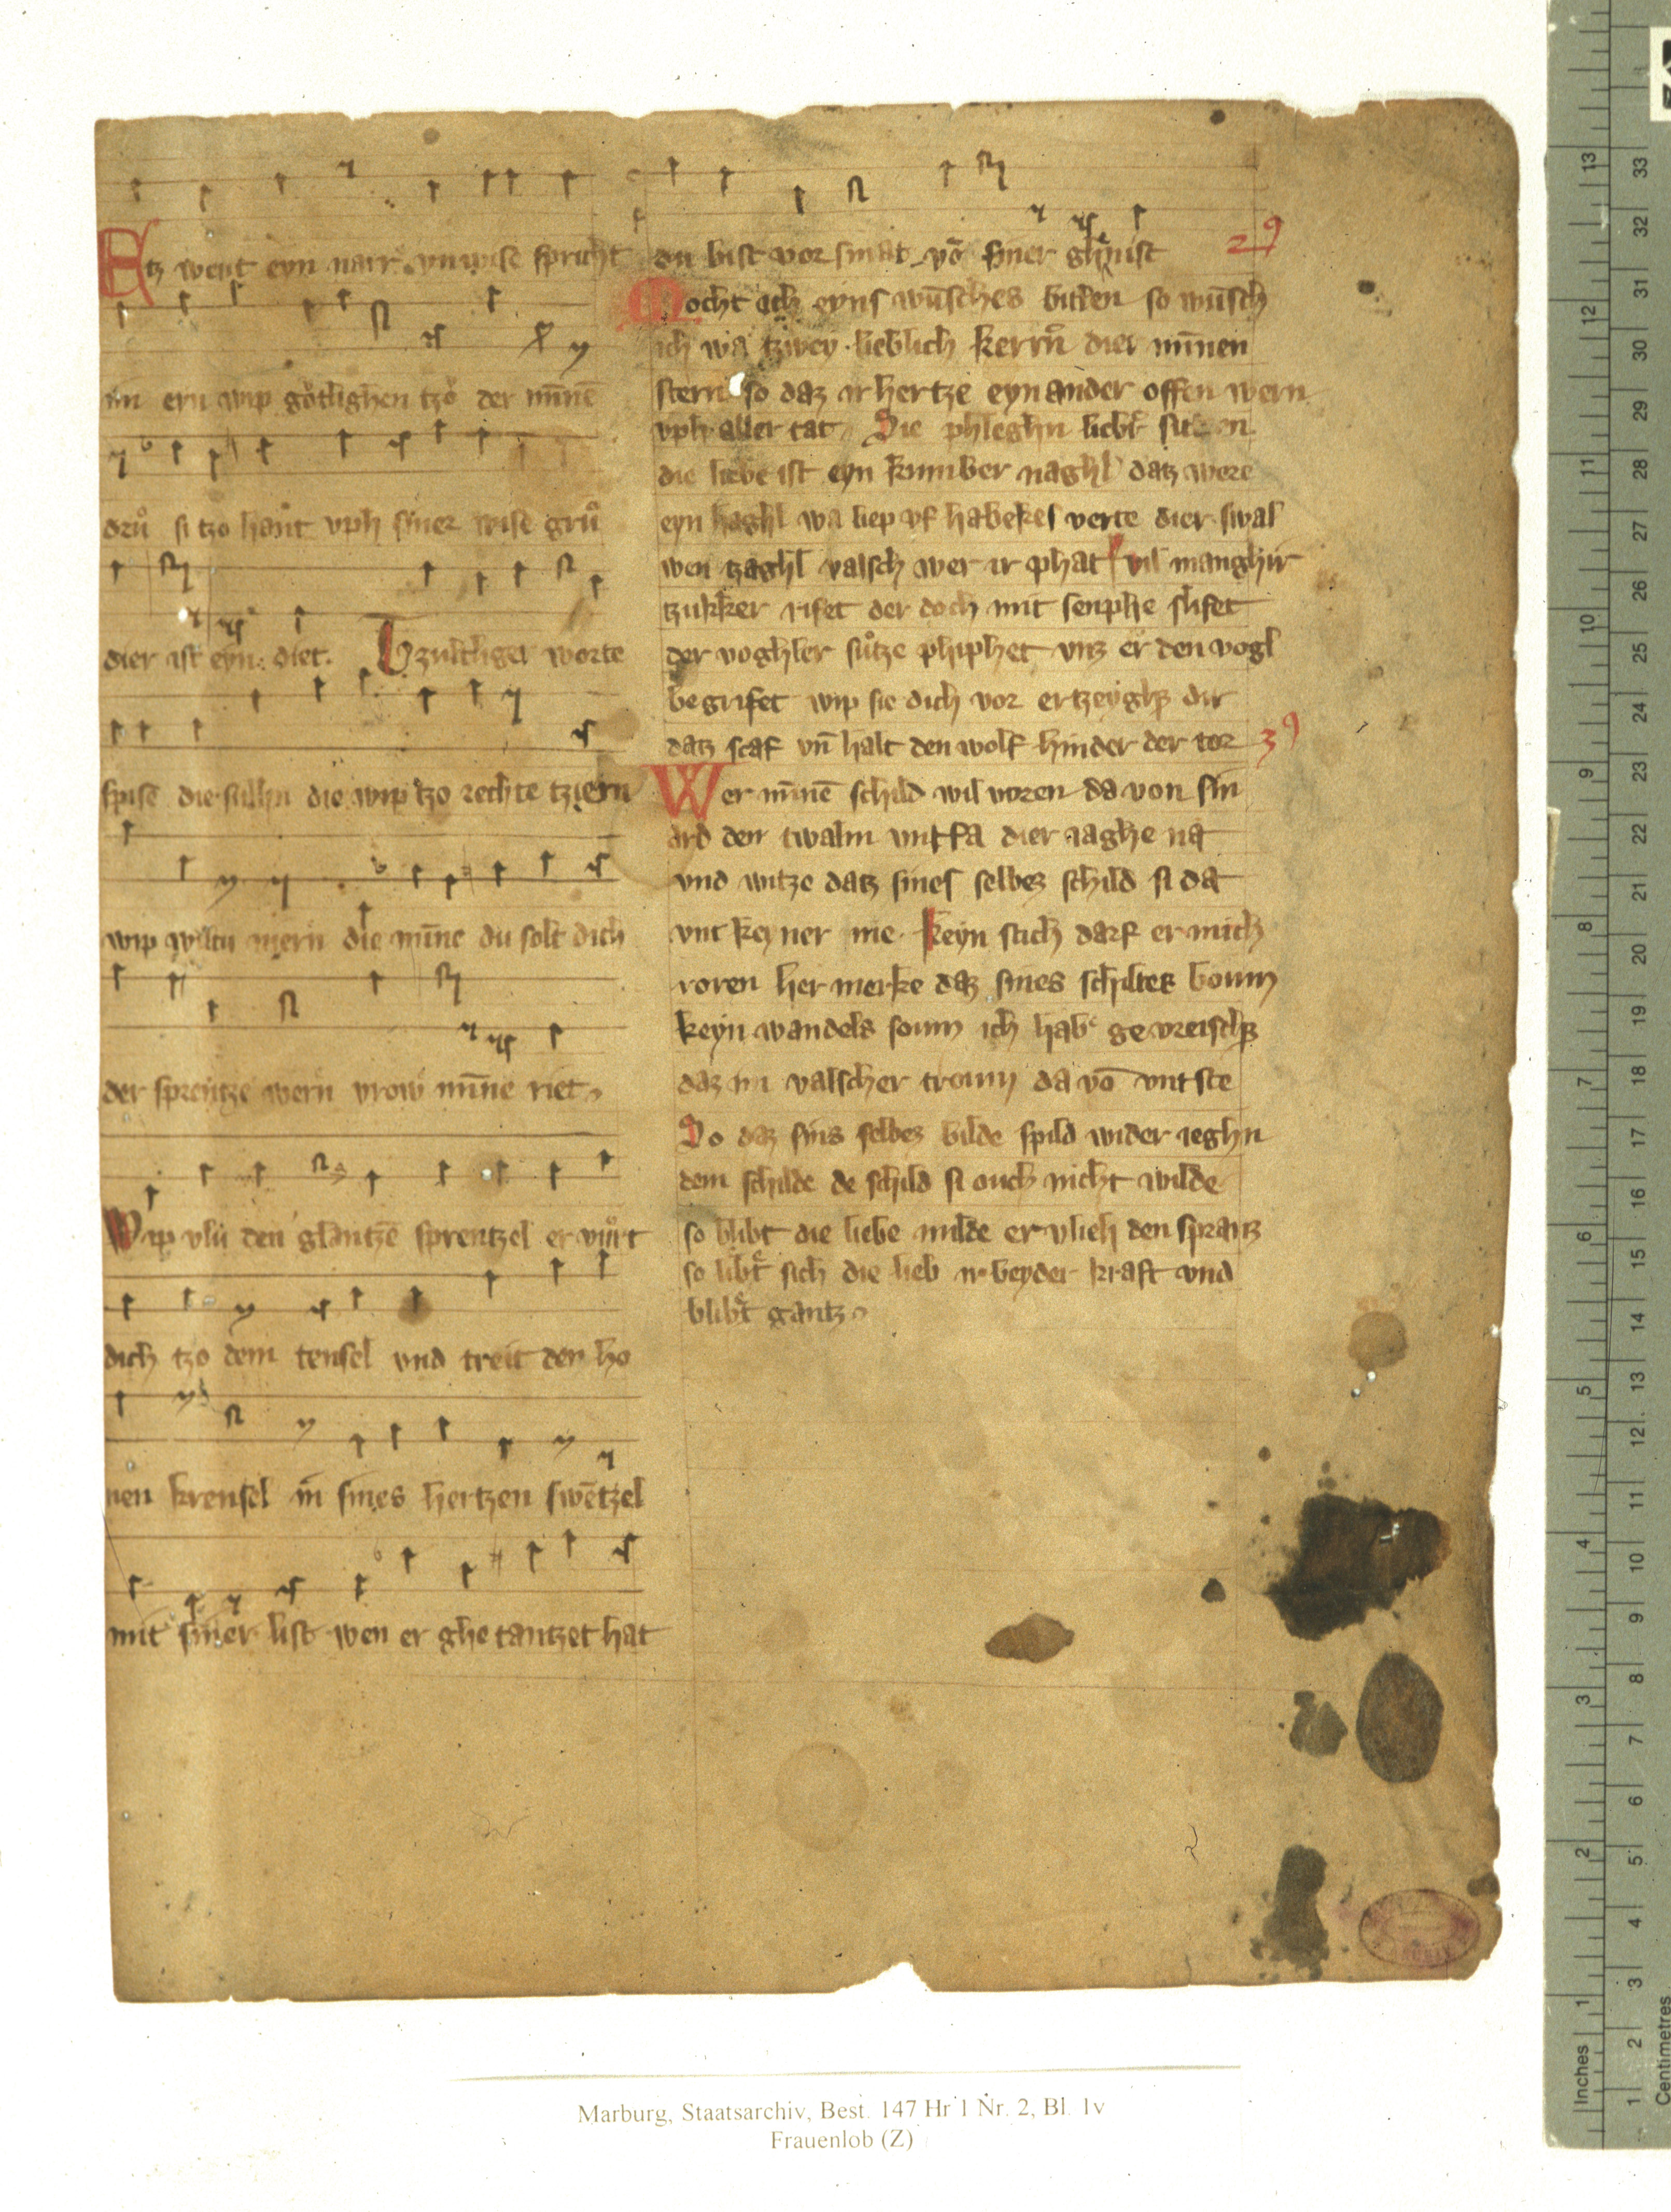 Etz went eyn narr vnwise spricht
im ern wip gotlighen tzo der mīnē
drů si tzo hant vph siner wise grů
dier ist eyn diet. Tzultiger worte
spise die sullin die wip tzo rechte tziern
wip wiltu niern die mīne du solt dich
der sprentze wern vrow mīne riet
Wip vlii den glantzē sprentzel er vůrt
dich tzo dem tensel vnd treit den ho
nen krensel in sines hertzen swētzel
mit siner list wen er ghe tantzet hat
du bist vor smat vō siner ghnist
29
Mocht ich eyns wūsches bitten so wūsch
ich wa tzwey lieblich kerrn dier mīnen
stern so daz ir hertze eyn ander offen wern
vph aller tat Die phleghn liebt sitten
die liebe ist eyn kumber naghl datz were
eyn haghl wa liep vf habekes verte dier swal
wen tzaghl valsch wer ir phat vil manghir
tzukker rifet der doch mit senphe slifet
der voghler sůtze phiphet vntz er den vogl
begrifet wip sie dich vor ertzeyghz dir
datz scaf vn̄ halt den wolf hinder der tor
39
Wer mīnē schild wil voren da von sin
ard den twalm vntfa dier iaghe na
vnd witze datz sines selbez schild si da
vnt keyner nie keyn stich darf er mich
roren her merke daz sines schiltes boum
keyn wandels soum ich hab ge vreischz
daz in valscher troum da vō vntste
Do daz sins selbez bilde spild wider ieghn
dem schilde de schild si ouch nicht wilde
so blibt die liebe milde er vlieh den spranz
so libt sich die lieb ir beyder kraft vnd
blibt gantz
Marburg, Staatsarchiv, Best. 147 Hr 1 Nr. 2, Bl. 1v
Frauenlob (Z)
Inches 1 2 3 4 5 6 7 8 9 10 11 12 13
Centimetres 1 2 3 4 5 6 7 8 9 10 11 12 13 14 15 16 17 18 19 20 21 22 23 24 25 26 27 28 29 30 31 32 33